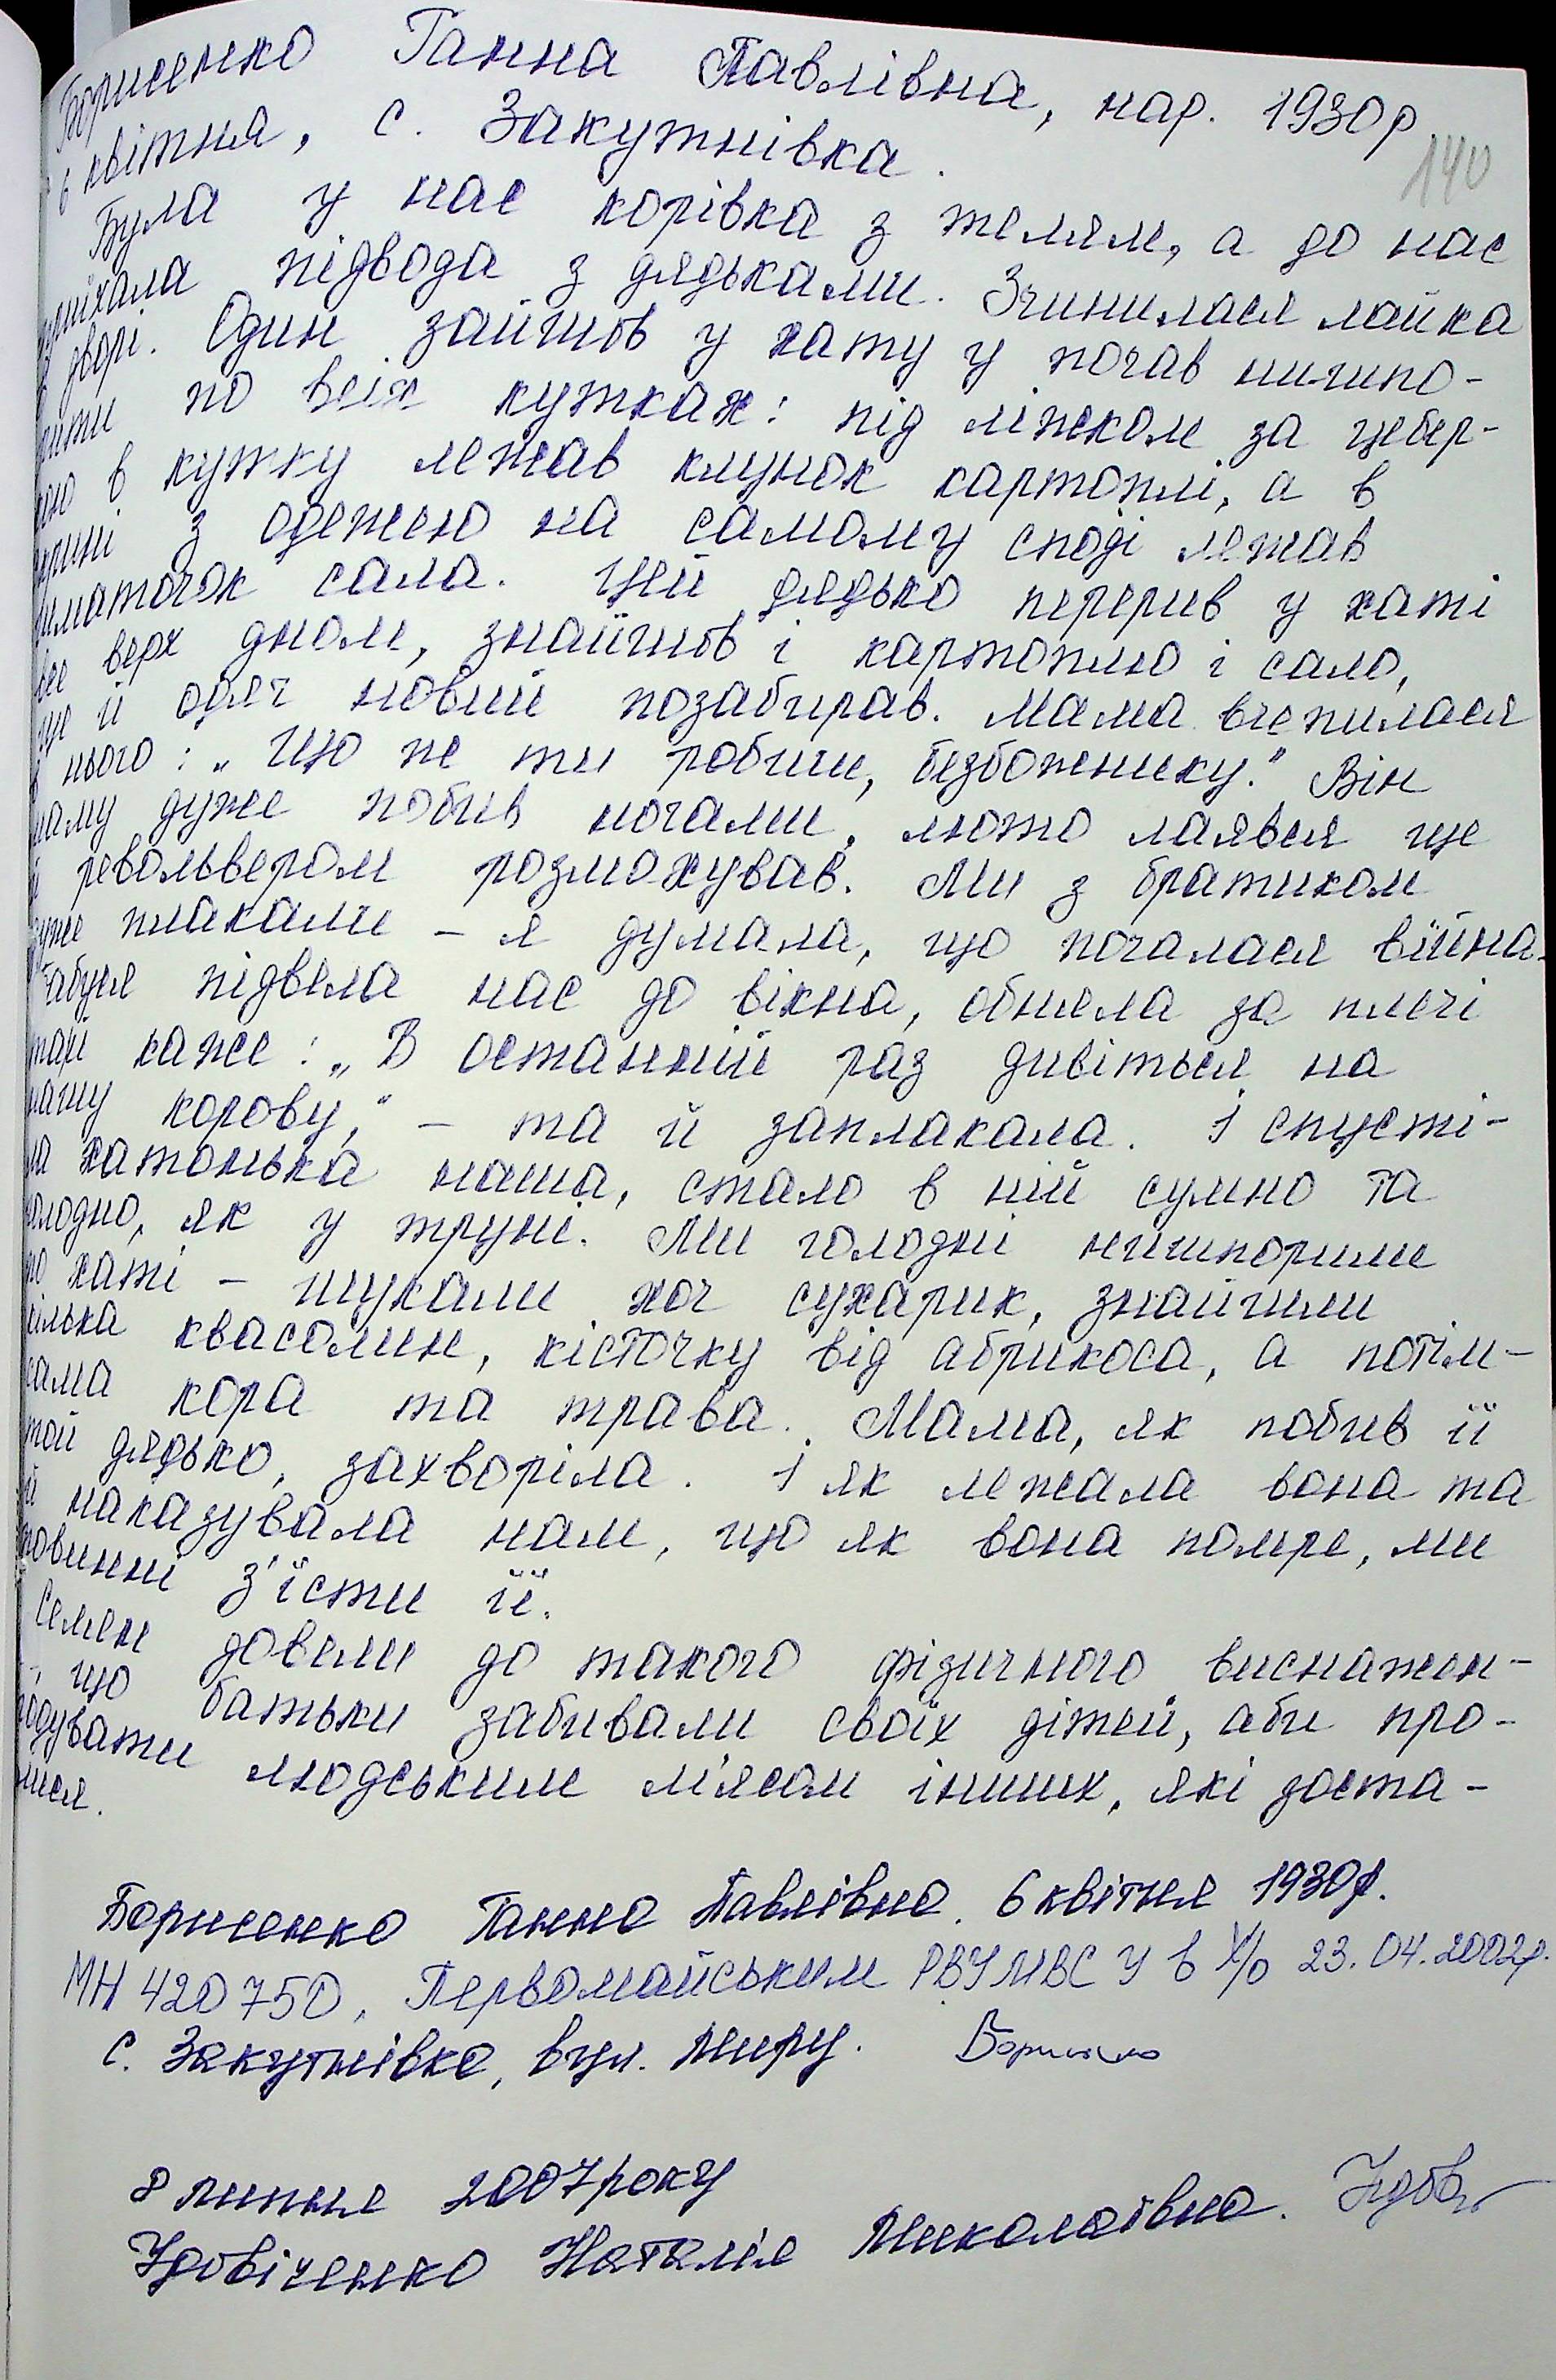 Борисенко Ганна Павлівна, нар. 1930р
6 квітня, с. Закутнівка.
140
Була у нас корівка з телям, а до нас
приїхала підвода з дядьками. Зчинилася лайка
в дворі. Один зайшов у хату у почав нишпо-
рити по всіх кутках: під ліжком за цебер-
кою в кутку лежав клунок картоплі, а в
скрині з одежею на самому споді лежав
шматочок сала. Цей дядько перерив у хаті
все верх дном, знайшов і картоплю і сало,
ще й одяг новий позабирав. Мама вчепилася
в нього: „Що же ти робиш, безбожнику." Він
маму дуже побив ногами, люто лаявся ще
й револьвером розмахував. Ми з братиком
дуже плакали – я думала, що почалася війна.
Бабуся підвела нас до вікна, обняла за плечі
та й каже: „В останній раз дивіться на
нашу корову," – та й заплакала. І спусті-
ла хатонька наша, стало в ній сумно та
холодно, як у труні. Ми голодні нишпорили
по хаті – шукали хоч сухарик, знайшли
кілька квасолин, кісточку від абрикоса, а потім-
сама кора та трава. Мама, як побив її
той дядько, захворіла. І як лежала вона та
й наказувала нам, що як вона помре, ми
повинні з'їсти її.
Селян довели до такого фізичного виснажен-
що батьки забивали своїх дітей, аби про-
годувати людським м'ясом інших, які доста-
лися.
Борисенко Ганна Павлівна. 6 квітня 1930р.
МН 420750, Первомайським РВУМВС У в Х/о 23.04.2002р.
с. Закутнівка, вул. Миру. Борисенко
8 липня 2007 року
Удовіченко Наталія Миколаївна. Удов